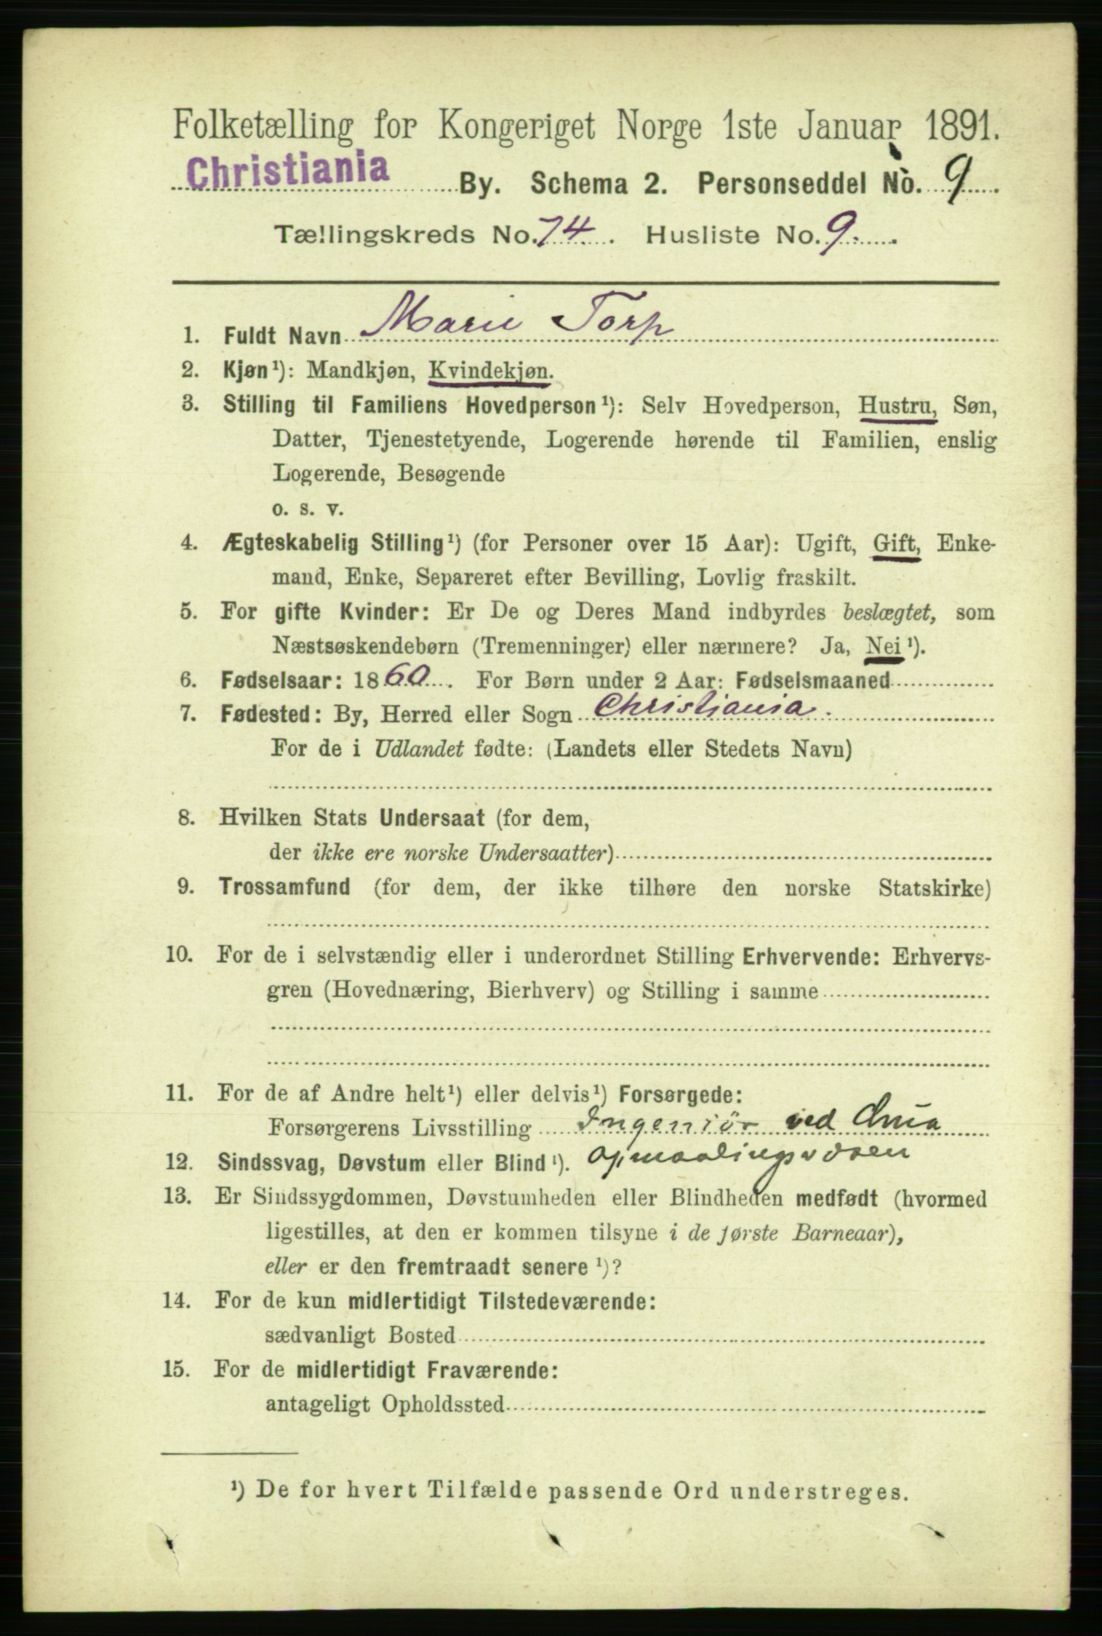 Folketælling for Kongeriget Norge 1ste Januar 1891.
Christiania By. Schema 2. Personseddel No. 9.
Tællingskreds No. 74. Husliste No. 9.
1. Fuldt Navn Marie Torp
2. Kjøn¹): Mandkjøn, Kvindekjøn.
3. Stilling til Familiens Hovedperson¹): Selv Hovedperson, Hustru, Søn,
Datter, Tjenestetyende, Logerende hørende til Familien, enslig
Logerende, Besøgende
o. s. v.
4. Ægteskabelig Stilling¹) (for Personer over 15 Aar): Ugift, Gift, Enke-
mand, Enke, Separeret efter Bevilling, Lovlig fraskilt.
5. For gifte Kvinder: Er De og Deres Mand indbyrdes beslægtet, som
Næstsøskendebørn (Tremenninger) eller nærmere? Ja, Nei¹).
6. Fødselsaar: 1860. For Børn under 2 Aar: Fødselsmaaned
7. Fødested: By, Herred eller Sogn Christiania.
For de i Udlandet fødte: (Landets eller Stedets Navn)
8. Hvilken Stats Undersaat (for dem,
der ikke ere norske Undersaatter)
9. Trossamfund (for dem, der ikke tilhøre den norske Statskirke)
10. For de i selvstændig eller i underordnet Stilling Erhvervende: Erhvervs-
gren (Hovednæring, Bierhverv) og Stilling i samme
11. For de af Andre helt¹) eller delvis¹) Forsørgede:
Forsørgerens Livsstilling Ingeniør ved Chria
12. Sindssvag, Døvstum eller Blind¹). Opmaalingsvæsen
13. Er Sindssygdommen, Døvstumheden eller Blindheden medfødt (hvormed
ligestilles, at den er kommen tilsyne i de første Barneaar),
eller er den fremtraadt senere¹)?
14. For de kun midlertidigt Tilstedeværende:
sædvanligt Bosted
15. For de midlertidigt Fraværende:
antageligt Opholdssted
¹) De for hvert Tilfælde passende Ord understreges.